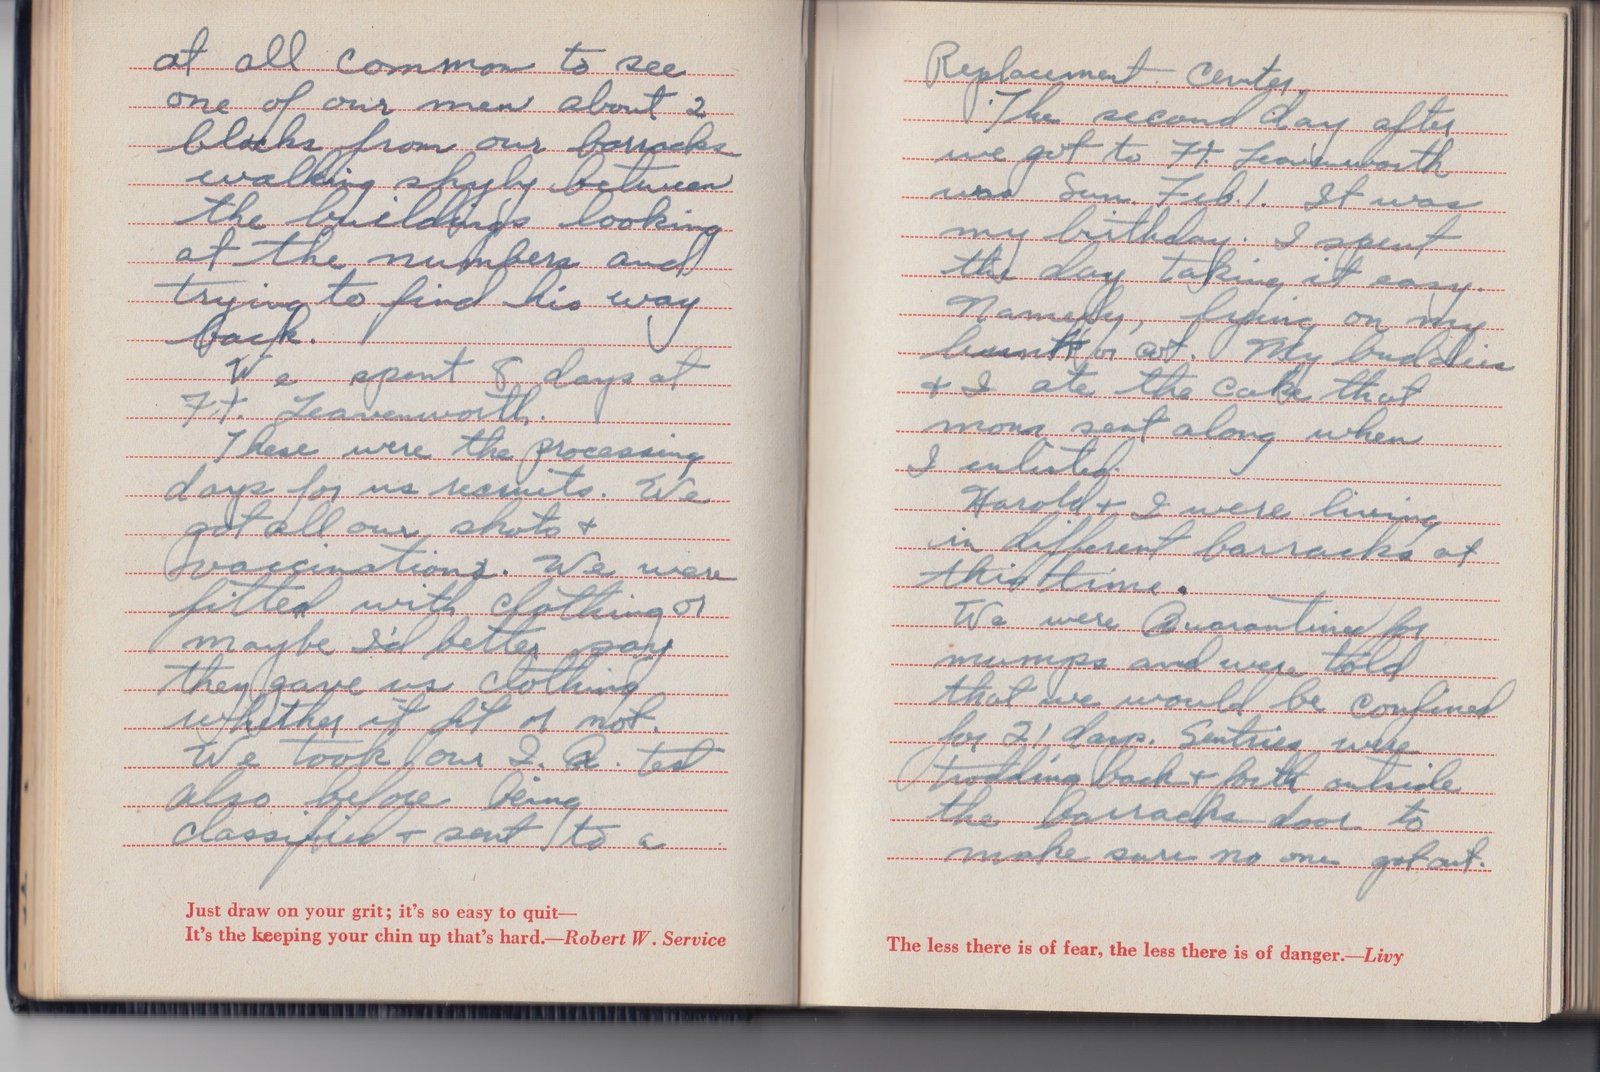 at all common to see
one of our men about 2
blocks from our barracks
walking shyly between
the buildings looking
at the numbers and
trying to find his way
back.
We spent 8 days at
Ft. Leavenworth.
These were the processing
days for us recruits. We
got all our shots +
vaccinations. We were
fitted with clothing or
maybe I'd better say
they gave us clothing
whether it fit or not.
We took our I.Q. test
also before being
classified + sent to a
Just draw on your grit; it's so easy to quit—
It's the keeping your chin up that's hard.—Robert W. Service
Replacement Center.
The second day after
we got to Ft. Leavenworth
was Sun. Feb. 1. It was
my birthday. I spent
the day taking it easy.
Namely, lying on my
or cot. My buddies
+ I ate the cake that
mom sent along when
I enlisted.
Harold + I were living
in different barracks at
this time.
We were Quarantined for
mumps and were told
that we would be confined
for 21 days. Sentries were
trodding back + forth outside
the barracks door to
make sure no one got out.
The less there is of fear, the less there is of danger.—Livy